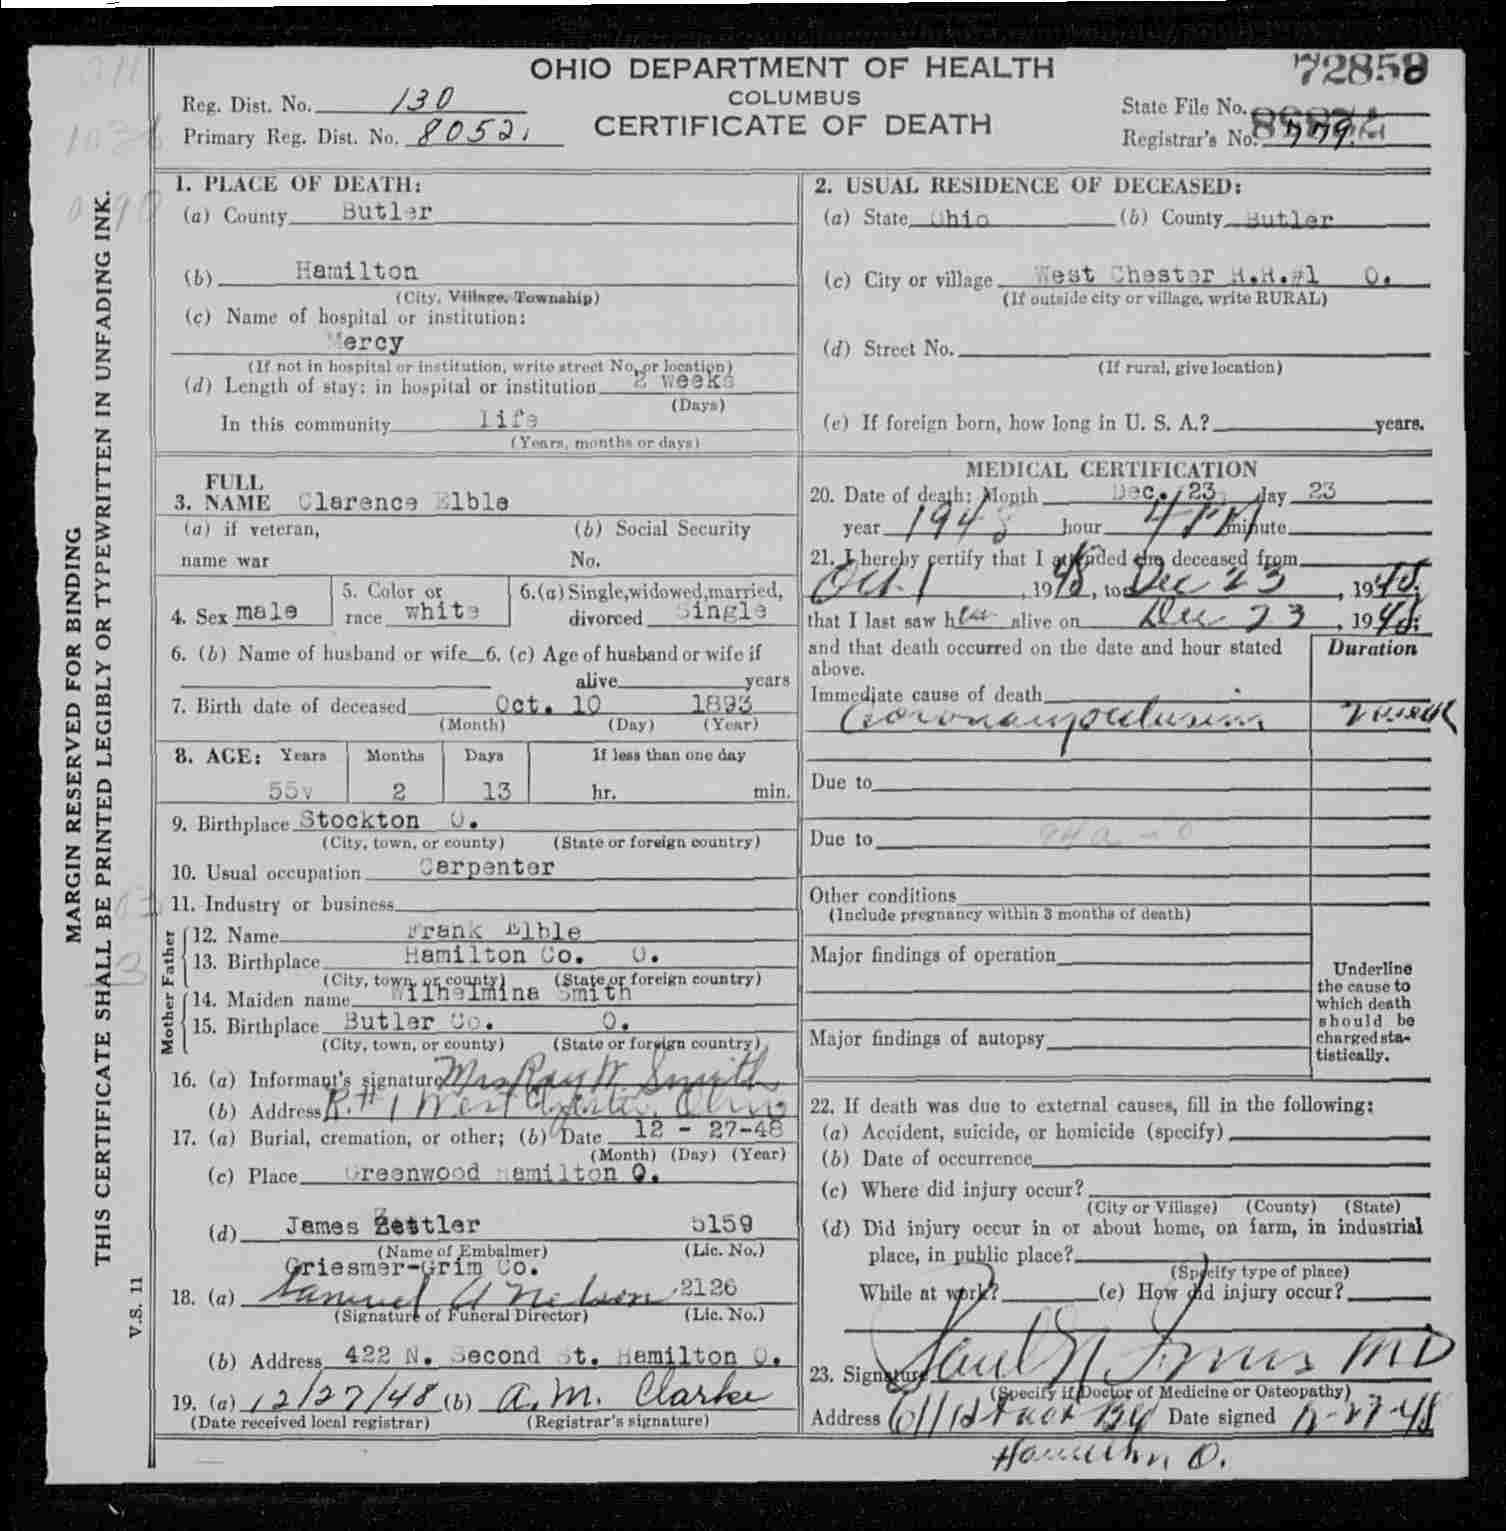 OHIO DEPARTMENT OF HEALTH
COLUMBUS
CERTIFICATE OF DEATH
72858
Reg. Dist. No. 130
Primary Reg. Dist. No. 8052.
State File No.
Registrar's No. 779.
MARGIN RESERVED FOR BINDING
THIS CERTIFICATE SHALL BE PRINTED LEGIBLY OR TYPEWRITTEN IN UNFADING INK.
V.S. 11
1. PLACE OF DEATH:
(a) County Butler
(b) Hamilton
(City, Village, Township)
(c) Name of hospital or institution:
Mercy
(If not in hospital or institution, write street No. or location)
(d) Length of stay: in hospital or institution 2 weeks
(Days)
In this community life
(Years, months or days)
2. USUAL RESIDENCE OF DECEASED:
(a) State Ohio (b) County Butler
(c) City or village West Chester R.R.#1 O.
(If outside city or village, write RURAL)
(d) Street No.
(If rural, give location)
(e) If foreign born, how long in U. S. A.? years.
FULL
3. NAME Clarence Elble
(a) if veteran, (b) Social Security
name war No.
4. Sex male
5. Color or
race white
6.(a) Single, widowed, married,
divorced Single
6. (b) Name of husband or wife 6. (c) Age of husband or wife if
alive years
7. Birth date of deceased Oct. 10 1893
(Month) (Day) (Year)
8. AGE: Years Months Days If less than one day
55y 2 13 hr. min.
9. Birthplace Stockton O.
(City, town, or county) (State or foreign country)
10. Usual occupation Carpenter
11. Industry or business
Father
12. Name Frank Elble
13. Birthplace Hamilton Co. O.
(City, town, or county) (State or foreign country)
Mother
14. Maiden name Wilhelmina Smith
15. Birthplace Butler Co. O.
(City, town, or county) (State or foreign country)
16. (a) Informant's signature Mrs Ray W. Smith
(b) Address R.#1 West Chester, Ohio
17. (a) Burial, cremation, or other; (b) Date 12 - 27-48
(Month) (Day) (Year)
(c) Place Greenwood Hamilton O.
(d) James Zettler 5159
(Name of Embalmer) (Lic. No.)
Griesmer-Grim Co.
18. (a) Samuel A Nelson 2126
(Signature of Funeral Director) (Lic. No.)
(b) Address 422 N. Second St. Hamilton O.
19. (a) 12/27/48 (b) A. M. Clarke
(Date received local registrar) (Registrar's signature)
MEDICAL CERTIFICATION
20. Date of death: Month Dec. 23, day 23
year 1948 hour 4 PM minute
21. I hereby certify that I attended the deceased from
Oct. 1, 1948, to Dec 23, 1948;
that I last saw h alive on Dec 23, 1948;
and that death occurred on the date and hour stated
above.
Duration
Immediate cause of death
Coronary occlusion
Due to
Due to 94a - 0
Other conditions
(Include pregnancy within 3 months of death)
Major findings of operation
Major findings of autopsy
Underline
the cause to
which death
should be
charged sta-
tistically.
22. If death was due to external causes, fill in the following:
(a) Accident, suicide, or homicide (specify)
(b) Date of occurrence
(c) Where did injury occur?
(City or Village) (County) (State)
(d) Did injury occur in or about home, on farm, in industrial
place, in public place?
(Specify type of place)
While at work? (e) How did injury occur?
23. Signature Paul N MD
(Specify if Doctor of Medicine or Osteopathy)
Address Date signed 12-27-48
Hamilton, O.